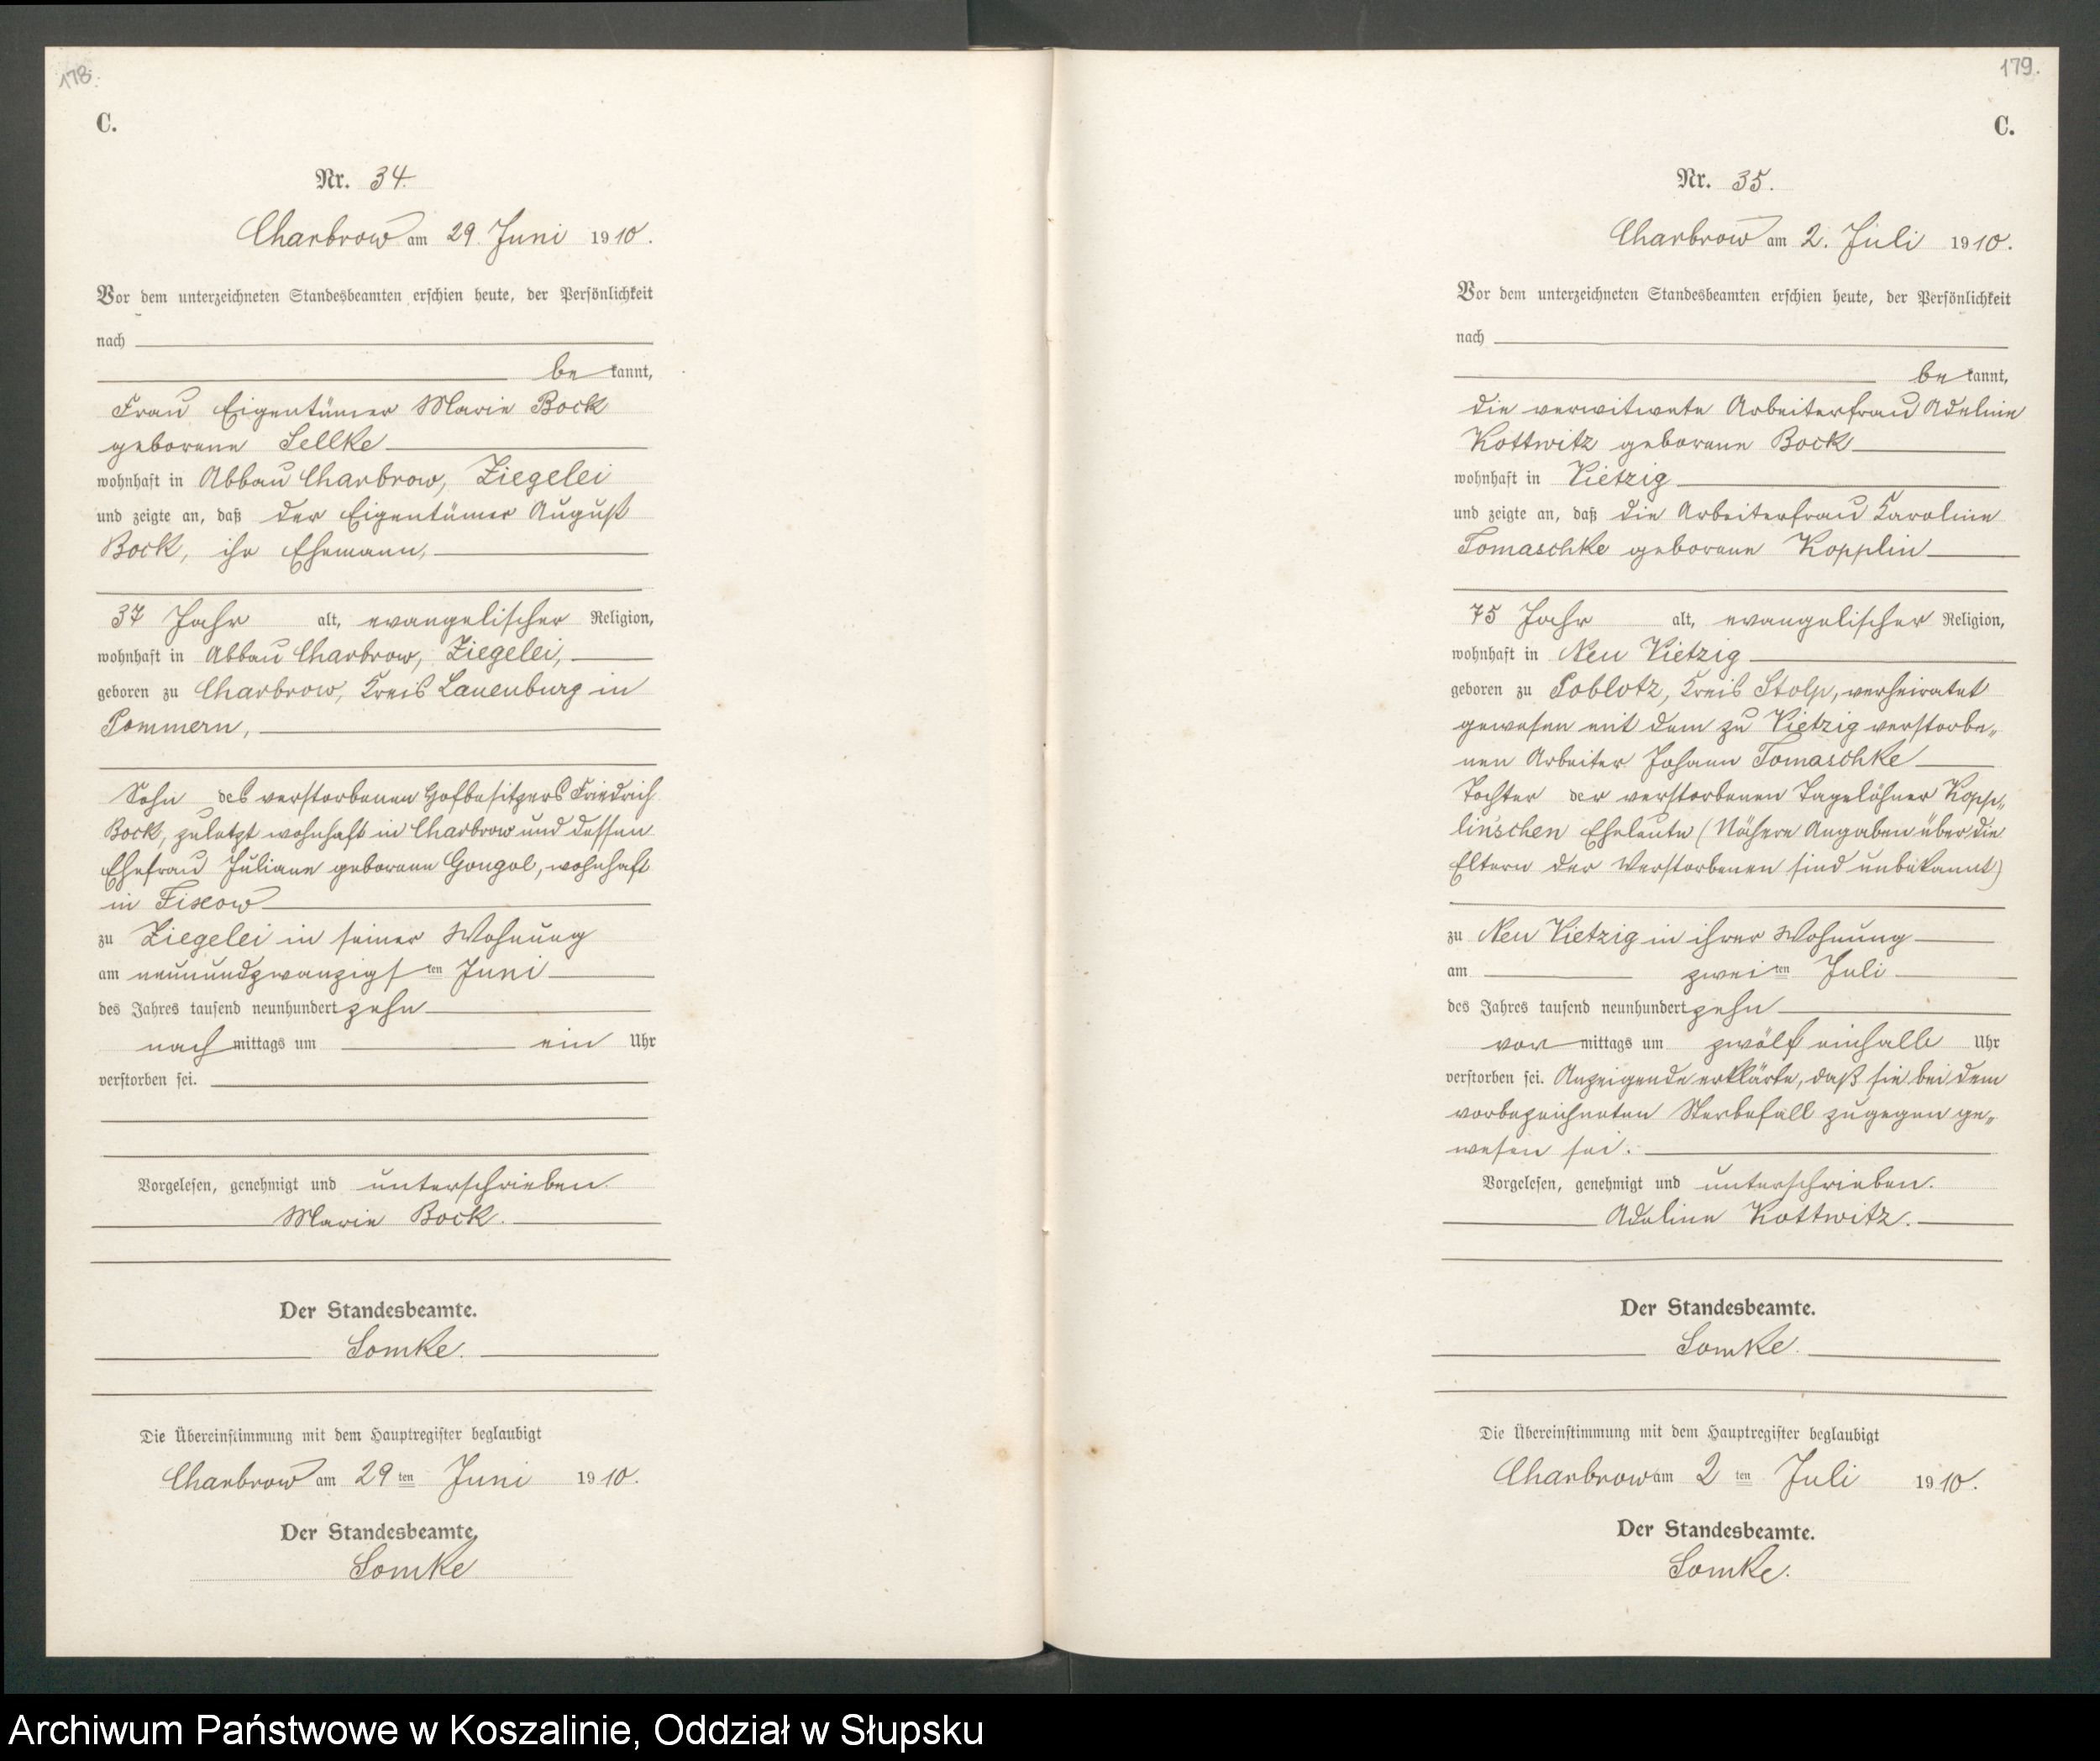 178.
C.
Nr. 34.
Charbrow am 29. Juni 1910.
Vor dem unterzeichneten Standesbeamten erschien heute, der Persönlichkeit
nach
be kannt,
Frau Eigentümer Marie Bock
geborene Sellke
wohnhaft in Abbau Charbrow, Ziegelei
und zeigte an, daß der Eigentümer August
Bock, ihr Ehemann,
37 Jahr alt, evangelischer Religion,
wohnhaft in Abbau Charbrow, Ziegelei,
geboren zu Charbrow, Kreis Lauenburg in
Pommern,
Sohn des verstorbenen Hofbesitzers Friedrich
Bock, zuletzt wohnhaft in Charbrow und dessen
Ehefrau Juliane geborene Gongol, wohnhaft
in Fixow
zu Ziegelei in seiner Wohnung
am neunundzwanzigsten Juni
des Jahres tausend neunhundert zehn
nach mittags um ein Uhr
verstorben sei.
Vorgelesen, genehmigt und unterschrieben.
Marie Bock.
Der Standesbeamte.
Somke.
Die Übereinstimmung mit dem Hauptregister beglaubigt
Charbrow am 29 ten Juni 1910.
Der Standesbeamte.
Somke
179.
C.
Nr. 35.
Charbrow am 2. Juli 1910.
Vor dem unterzeichneten Standesbeamten erschien heute, der Persönlichkeit
nach
be kannt,
die verwitwete Arbeiterfrau Adeline
Kottwitz geborene Bock
wohnhaft in Vietzig
und zeigte an, daß die Arbeiterfrau Karoline
Tomaschke geborene Kopplin
75 Jahr alt, evangelischer Religion,
wohnhaft in Neu Vietzig
geboren zu Poblotz, Kreis Stolp, verheiratet
gewesen mit dem zu Vietzig verstorbe„
nen Arbeiter Johann Tomaschke
Tochter der verstorbenen Tagelöhner Kopp„
lin'schen Eheleute (Nähere Angaben über die
Eltern der Verstorbenen sind unbekannt)
zu Neu Vietzig in ihrer Wohnung
am zwei ten Juli
des Jahres tausend neunhundert zehn
vor mittags um zwölf einhalb Uhr
verstorben sei. Anzeigende erklärte, daß sie bei dem
vorbezeichneten Sterbefall zugegen ge„
wesen sei.
Vorgelesen, genehmigt und unterschrieben.
Adeline Kottwitz.
Der Standesbeamte.
Somke.
Die Übereinstimmung mit dem Hauptregister beglaubigt
Charbrow am 2 ten Juli 1910.
Der Standesbeamte.
Somke.
Archiwum Państwowe w Koszalinie, Oddział w Słupsku